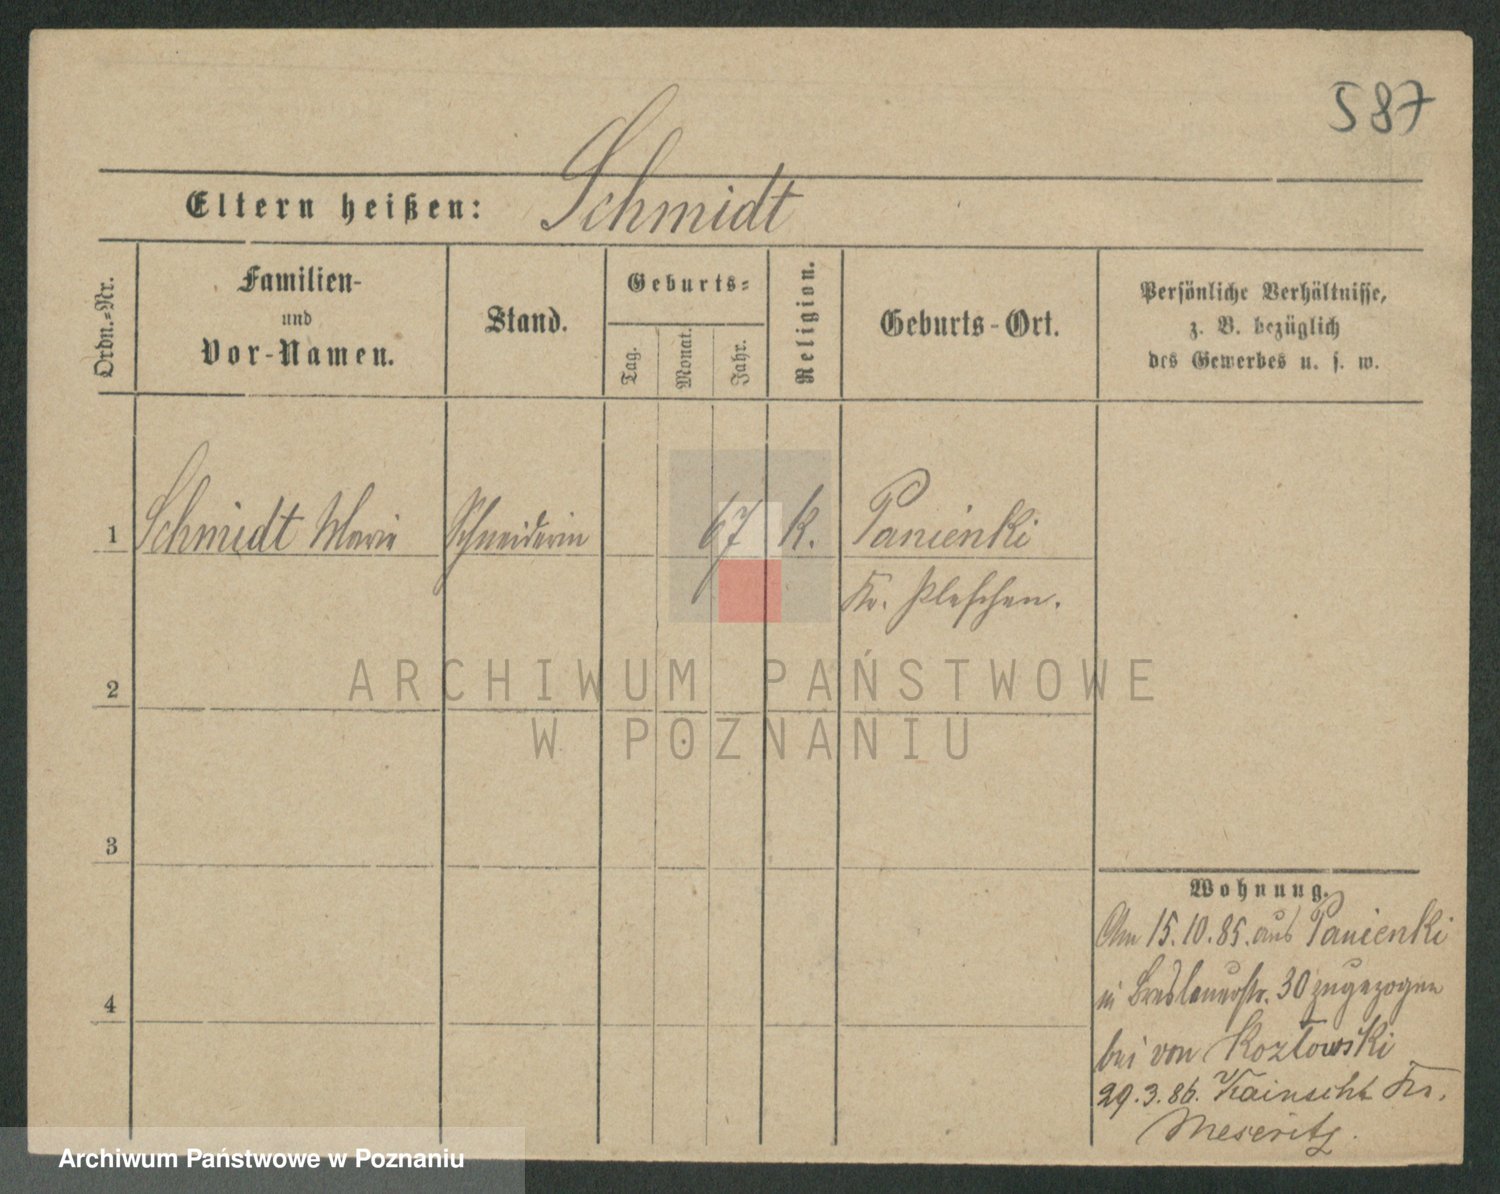 587
Eltern heißen: Schmidt
Ordn.=Nr.
Familien-
und
Vor-Namen.
Stand.
Geburts=
Tag.
Monat.
Jahr.
Religion.
Geburts-Ort.
Persönliche Verhältnisse,
z. B. bezüglich
des Gewerbes u. s. w.
1 Schmidt Marie Schneiderin 67 k. Panienki
Kr. Pleschen.
ARCHIWUM PAŃSTWOWE
W POZNANIU
2
3
4
Wohnung.
Am 15.10.85. aus Panienki
in Breslauerstr. 30 zugezogen
bei von Kozłowski
29.3.86. Kainscht Kr.
Meseritz.
Archiwum Państwowe w Poznaniu